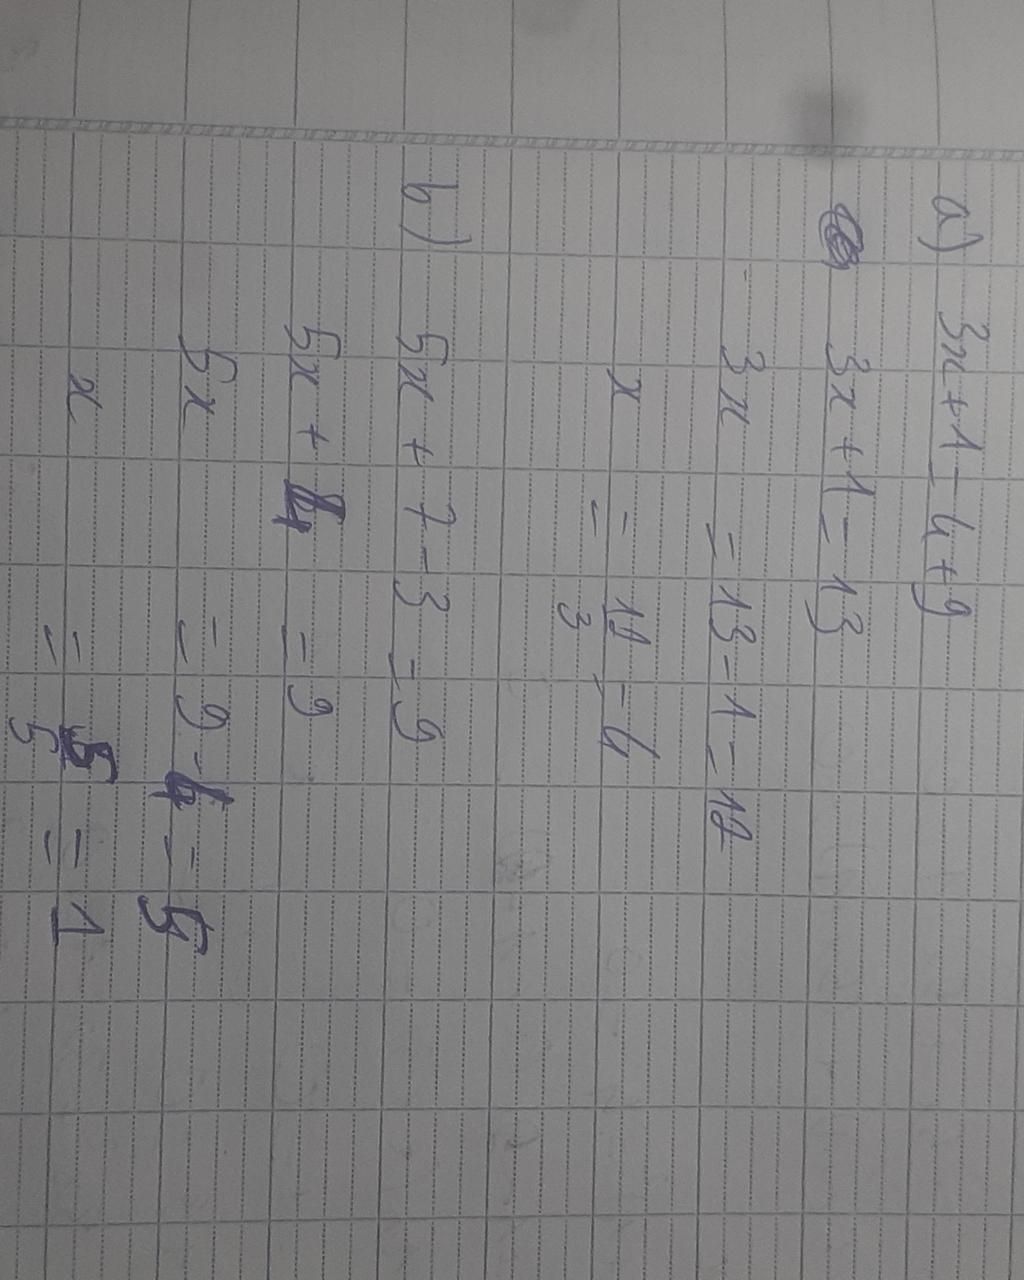 a) 3x+1=4+9
3x+1=13
3x =13-1=12
x = 12/3 =4
b) 5x+7-3=9
5x+4 =9
5x =9-4=5
x = 5/5 =1